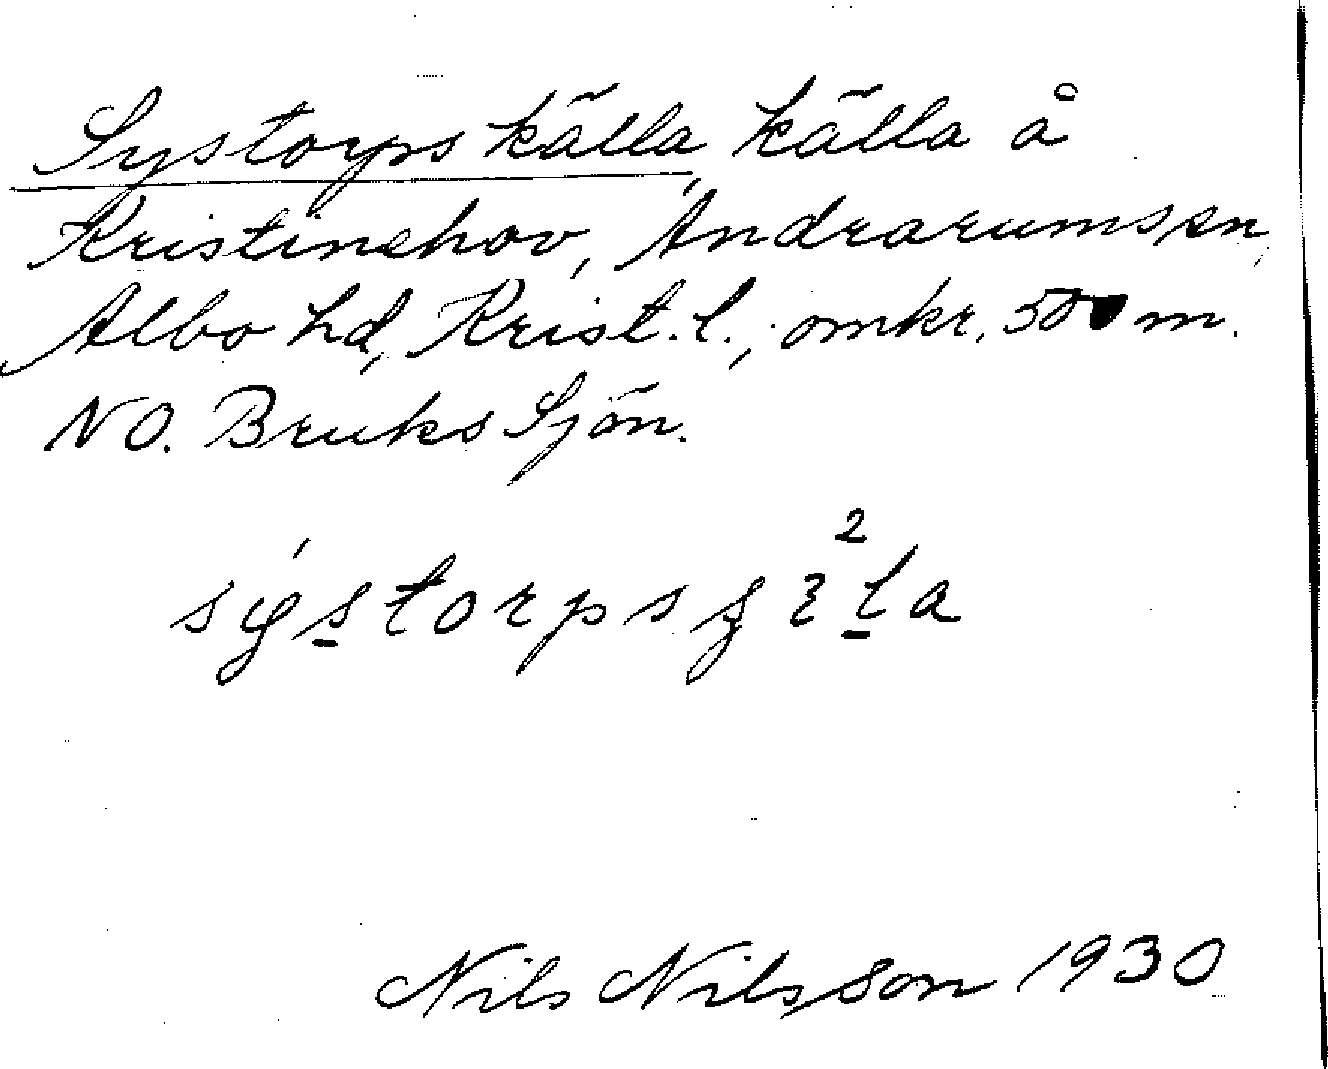 Systorps källa, källa å
Kristinehov, Andrarums sn,
Albo hd, Krist. l., omkr. 500 m.
NO. Bruks Sjön.
Nils Nilsson 1930